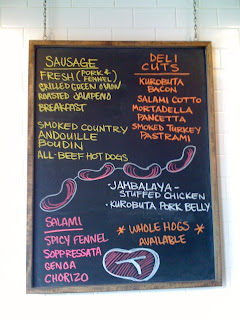 SAUSAGE
FRESH (PORK & FENNEL)
GRILLED GREEN ONION
ROASTED JALAPENO
BREAKFAST
SMOKED COUNTRY
ANDOUILLE
BOUDIN
ALL-BEEF HOT DOGS
DELI CUTS
KUROBUTA
BACON
SALAMI COTTO
MORTADELLA
PANCETTA
SMOKED TURKEY
PASTRAMI
• JAMBALAYA-
STUFFED CHICKEN
• KUROBUTA PORK BELLY
SALAMI
SPICY FENNEL
SOPPRESSATA
GENOA
CHORIZO
* WHOLE HOGS *
AVAILABLE